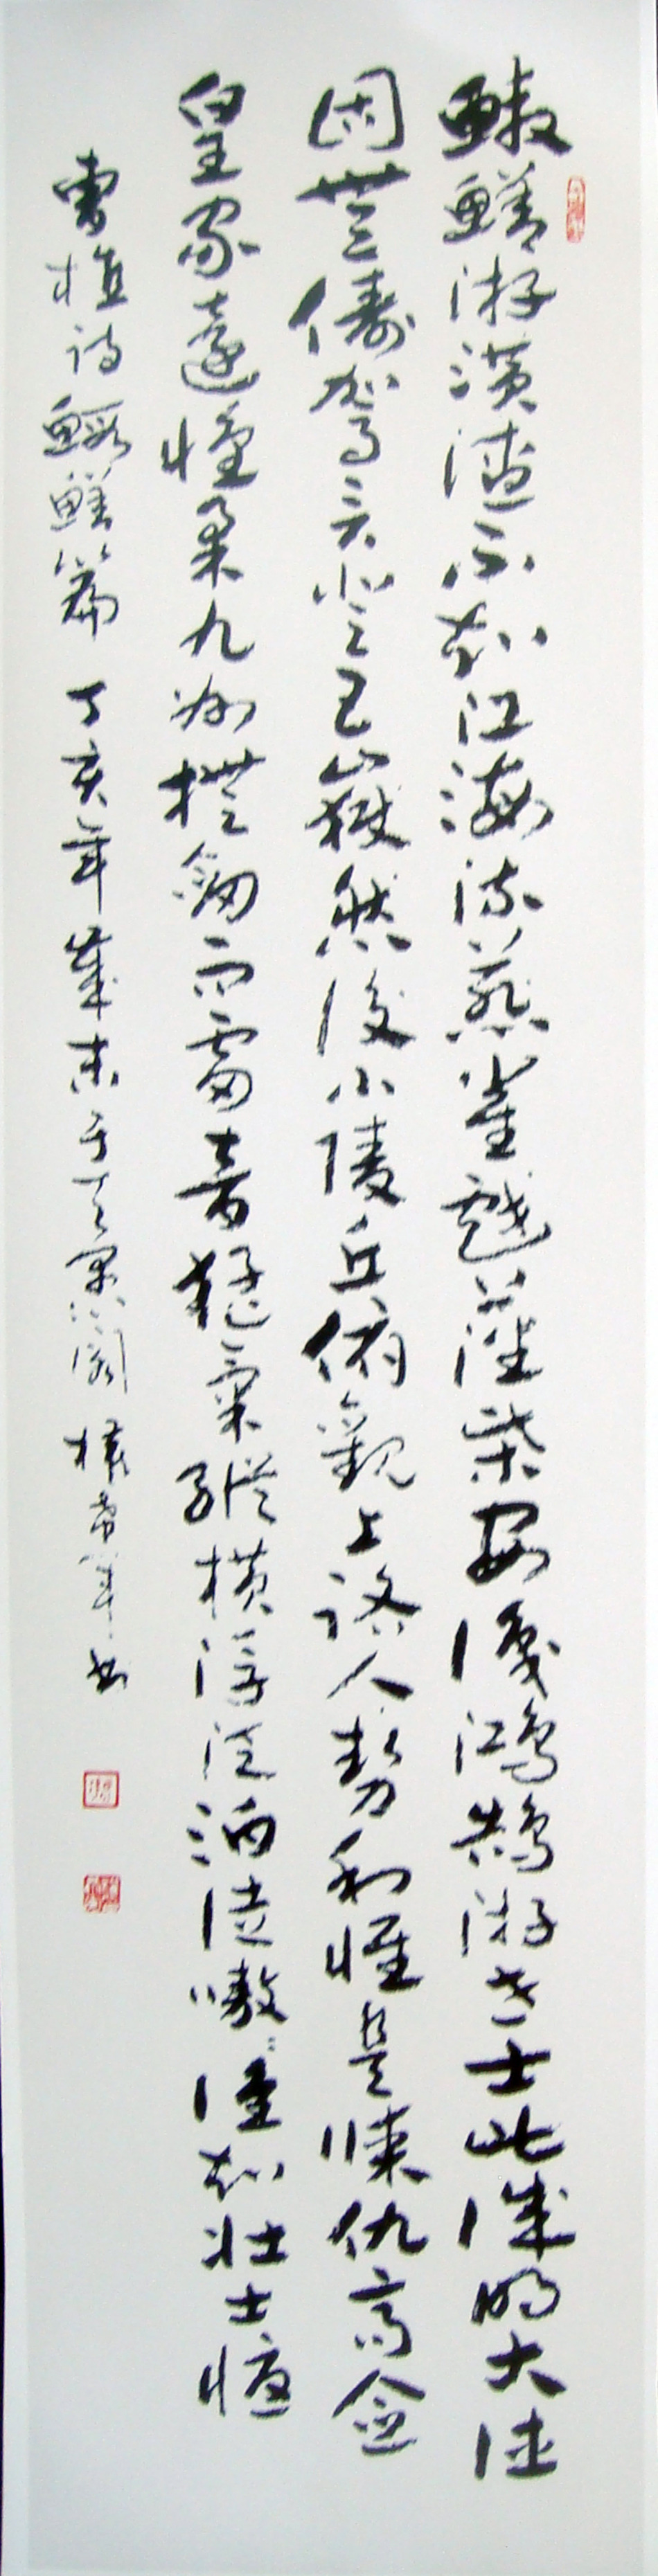 鰕鱔游潢潦不知江海流燕雀戲藩柴安識鴻鵠游世士此誠明大德
固無儔駕言登五嶽然後小陵丘俯觀上路人勢利惟是謀仇高念
皇家遠懷柔九州撫劍而雷音猛氣縱橫浮泛泊徒嗷嗷誰知壯士憂
曹植诗鰕鱔篇 丁亥年歲末于天墨閣 书